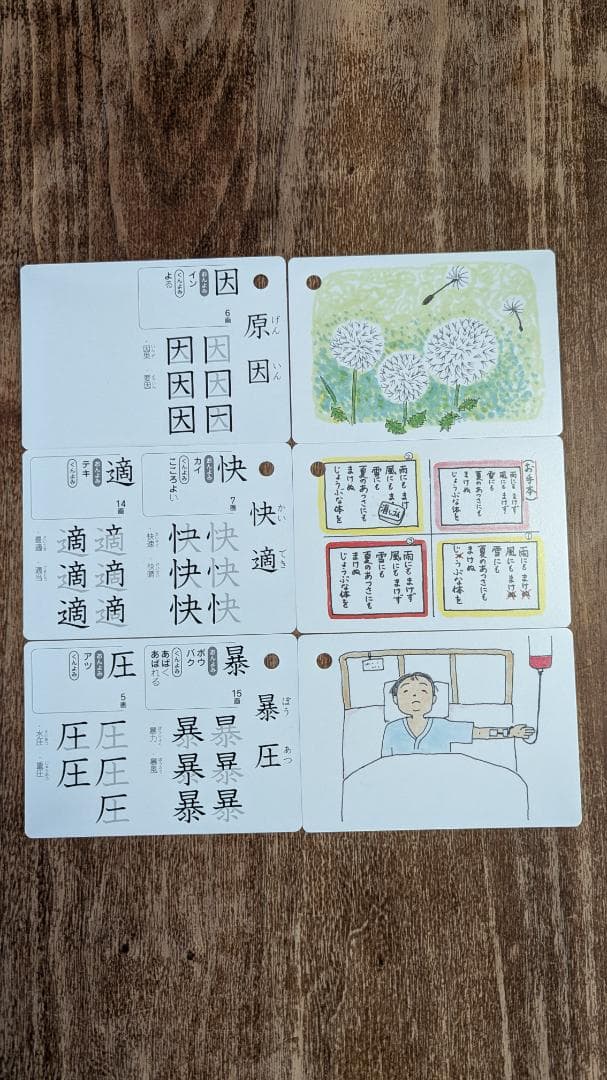 原因
げんいん
因
6画
おんよみ
イン
くんよみ
よる
因因因
因因因
要因
因果
快適
かいてき
快
7画
おんよみ
カイ
くんよみ
こころよい
快快快
快快快
快晴
快速
適
14画
おんよみ
テキ
くんよみ
適適適
適適適
適当
最適
お手本
雨にも まけず
風にもまけず
雪にも
夏のあつさにも
まけぬ
じょうぶな体を
①
雨にも まけぬ
風にも まけぬ
雪にも
夏のあつさにも
まけぬ
じょうぶな体を
②
雨にも ま
風にもま
雪にも
夏のあつさにも
まけぬ
じょうぶな体を
雨にも まけず
風にも まけず
雪にも
夏のあつさにも
まけぬ
じょうぶな体を
暴圧
ぼうあつ
暴
15画
おんよみ
ボウ
バク
くんよみ
あばく
あばれる
暴暴暴
暴暴暴
暴風
暴力
圧
5画
おんよみ
アツ
くんよみ
圧圧圧
圧圧
重圧
水圧